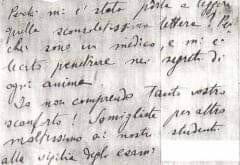 Perchè mi è stata porta a leggere
quella sconclusionata lettera? Per
che sono un medico, e mi è
lecito penetrare nei segreti di
ogni anima!
Io non comprendo tanto vostro
sconforto! Somigliate per altro
moltissimo ai nostri studenti
alla vigilia degli esami